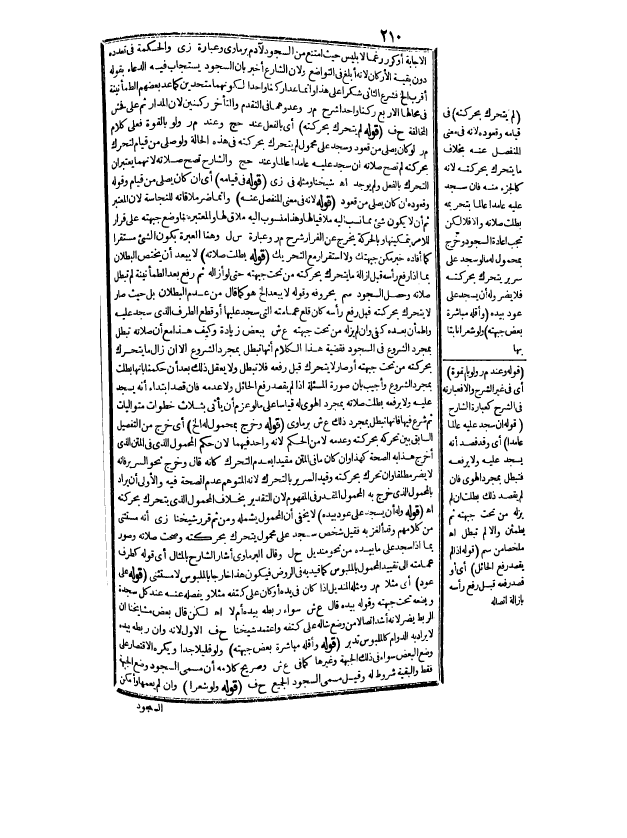 ٢١٠
الاجابة أو كرر رغما لابليس حيث امتنع من السجود لآدم برماوى وعبارة زى والحكمة فى تعدده
دون بقية الأركان لانه أبلغ فى التواضع ولان الشارع أخبر بان السجود يستجاب فيه الدعاء بقوله
أقرب الخ فشرع الثانى شكرا على هذا وانما عدا ركنا واحدا لكونهما متحدين كما عد بعضهم الطمأنينة
فى محالها الاربع ركنا واحدا شرح م ر وعدوهما فى التقدم والتأخر ركنين لان المدار ثم على فحش
المخالفة ح ف (قوله لم يتحرك بحركته) أى بالفعل عند حج وعند م ر ولو بالقوة فعلى كلام
م ر لو كان يصلى من قعود وسجد على محمول لم يتحرك بحركته فى هذه الحالة ولو صلى من قيام لتحرك
بحركته لم تصح صلاته ان سجد عليه عامدا عالما وعند حج والشارح تصح صلاته لانهما يعتبران
التحرك بالفعل ولم يوجد اه شيخنا ومثله فى زى (قوله فى قيامه) أى ان كان يصلى من قيام وقوله
وقعوده ان كان يصلى من قعود (قوله لانه فى معنى المنفصل عنه) وانما ضر ملاقاته للنجاسة لان المعتبر
ثم أن لا يكون شئ مما نسب اليه ملاقيا لها وهذا منسوب اليه ملاق لها والمعتبر هنا وضع جبهته على قرار
للامر بتمكينها وبالحركة يخرج عن القرار شرح م ر وعبارة س ل وهنا العبرة بكون الشئ مستقرا
كما أفاده خبر مكن جبهتك ولا استقرار مع التحريك (قوله بطلت صلاته) لا يبعد أن يختص البطلان
بما اذا رفع رأسه قبل ازالة ما يتحرك بحركته من تحت جبهته حتى لو أزاله ثم رفع بعد الطمأنينة لم تبطل
صلاته وحصل السجود سم بحروفه وقوله لا يبعد الخ هو كما قال من عدم البطلان بل حيث صار
لا يتحرك بحركته قبل رفع رأسه كان قلع عمامته التى سجد عليها أو قطع الطرف الذى سجد عليه
واطمأن بعده كفى وان لم يزله من تحت جبهته ع ش ببعض زيادة وكيف هذا مع أن صلاته تبطل
بمجرد الشروع فى السجود فقضية هذا الكلام أنها تبطل بمجرد الشروع الا ان زال ما يتحرك
بحركته من تحت جبهته أو صار لا يتحرك قبل رفعه فلا تبطل ولا يعقل ذلك بعد أن حكمنا بانها بطلت
بمجرد الشروع وأجيب بان صورة المسئلة اذا لم يقصد رفع الحائل ولا عدمه فان قصد ابتداء أنه يسجد
عليه ولا يرفعه بطلت صلاته بمجرد الهوى له قياسا على ما لو عزم أن يأتى بثلاث خطوات متواليات
ثم شرع فيها فانها تبطل بمجرد ذلك ع ش برماوى (قوله وخرج بمحمول له الخ) أى خرج من التفصيل
السابق بين تحركه بحركته وعدمه لا من الحكم لانه واحد فيهما لان حكم المحمول الذى فى المتن الذى
أخرج هذا به الصحة كهذا وان كان ما فى المتن مقيدا بعدم التحرك كانه قال وخرج نحو السرير فانه
لا يضر مطلقا وان تحرك بحركته وقيد السرير بالتحرك لانه المتوهم عدم الصحة فيه والأولى أن يراد
بالمحمول الذى خرج به المحمول المقدر فى المفهوم لان التقدير بخلاف المحمول الذى يتحرك بحركته
اه (قوله وله أن يسجد على عود بيده) لا يخفى أن المحمول يشمله ومن ثم قرر شيخنا زى أنه مستثنى
من كلامهم وقد ألغز به فقيل شخص سجد على محمول يتحرك بحركته وصحت صلاته وصور
بما اذا سجد على ما بيده من نحو منديل ح ل وقال البرماوى أشار الشارح بالمثال أى قوله كطرف
عمامته الى تقييد المحمول بالملبوس كما قيد به فى الروض فيكون هذا خارجا بالملبوس لا مستثنى (قوله على
عود) أى مثلا م ر ومثله المنديل اذا كان فى يده أو كان على كتفه مثلا ويفصله عنه عند كل سجدة
ويضعه تحت جبهته وقوله بيده قال ع ش سواء ربطه بيده أم لا اه لكن قال بعض مشايخنا ان
الربط يضر لانه أشد اتصالا من وضع شاله على كتفه واعتمد شيخنا ح ف الاول لانه وان ربطه بيده
لا يراد به الدوام كالملبوس تدبر (قوله وأقله مباشرة بعض جبهته) ولو قليلا جدا ويكره الاقتصار على
وضع البعض سواء فى ذلك الجبهة وغيرها كما فى ع ش وصريح كلامه أن مسمى السجود وضع الجبهة
فقط والبقية شروط له وقيل مسمى السجود الجميع ح ف (قوله ولو شعرا) وان لم يعمها وأمكن
السجود
(لم يتحرك بحركته) فى
قيامه وقعوده لانه فى معنى
المنفصل عنه بخلاف
ما يتحرك بحركته لانه
كالجزء منه فان سجد
عليه عامدا عالما بتحريمه
بطلت صلاته والا فلا لكن
تجب اعادة السجود وخرج
بمحمول له ما لو سجد على
سرير يتحرك بحركته
فلا يضر وله أن يسجد على
عود بيده (وأقله مباشرة
بعض جبهته) ولو شعرا نابتا
بها
(قوله وعند م ر ولو بالقوة)
أى فى غير الشرح والا فعبارته
فى الشرح كعبارة الشارح
(قوله ان سجد عليه عالما
عامدا) أى وقد قصد أنه
يسجد عليه ولا يرفعه
فتبطل بمجرد الهوى فان
لم يقصد ذلك بطلت ان لم
يزله من تحت جبهته ثم
يطمئن والا لم تبطل اه
ملخصا من سم (قوله اذا لم
يقصد رفع الحائل) أى أو
قصد رفعه قبل رفع رأسه
بازالة اتصاله